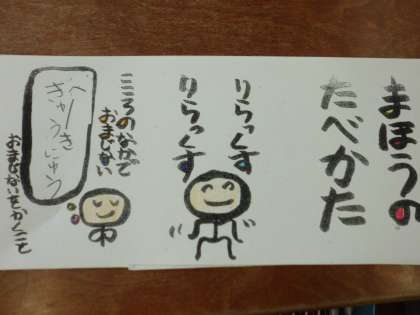 まほうの
たべかた
りらっくす
りらっくす
こころのなかで
おまじない
べーき
きゅうにゅう
おまじないをかくこと